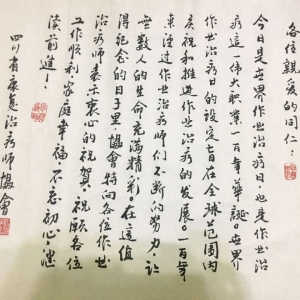 各位親爱的同仁：
今日是世界作业治疗日，也是作业治
疗這一伟大职業一百年華誕。世界
作业治疗日的设定旨在全球范围内
庆祝和推进作业治疗的发展。一百年
来經过作业治疗师们不断的努力，让
無数人的生命充满精彩。在這值
得纪念的日子里，協會特向各位作业
治疗师表示衷心的祝賀。祝願各位
工作顺利，家庭幸福，不忘初心，繼
续前進！
四川省康复治疗师協會